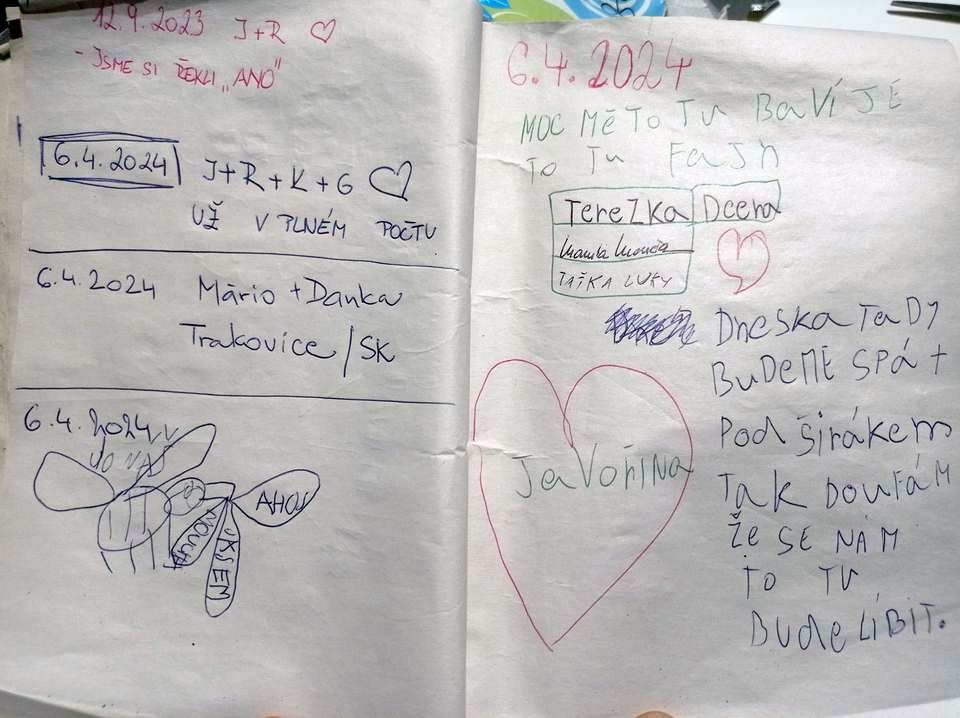 12.9.2023 J+R
- JSME SI ŘEKLI „ANO"
6.4.2024
J+R+K+G
UŽ V PLNÉM POČTU
6.4.2024 Mário + Danka
Trakovice / SK
6.4.2024
AHOJ
JKSEM
6.4.2024
MOC MĚ TO TU BaVÍ JE
TO TU FaJn
TereZKa Dcera
TAŤKA LUKY
DneSKa TaDy
BuDEME SPÁt
Pod širákem
Tak DOUFÁM
ŽE SE NÁM
TO TU
Bude LÍBIT.
JaVořiNa